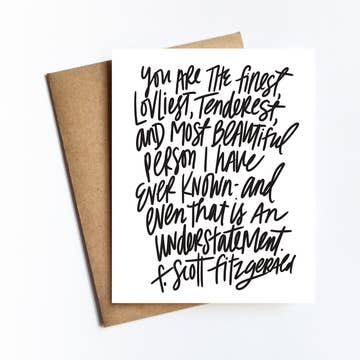 you ARE THE finest,
Lovliest, Tenderest,
AND MOST BEAUTIFUL
person I HAVE
EVER KNOWN - AND
even THAT is AN
UNDERSTATEMENT.
f. Scott fitzGERALD